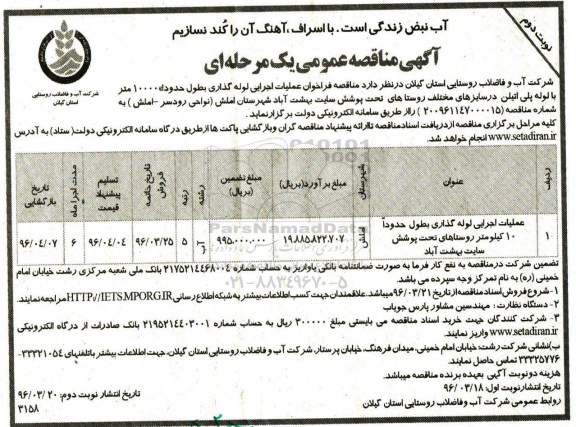 آب نبض زندگی است. با اسراف، آهنگ آن را کُند نسازیم
نوبت دوم
آگهی مناقصه عمومی یک مرحله‌ای
شرکت آب و فاضلاب روستایی
استان گیلان
شرکت آب و فاضلاب روستایی استان گیلان درنظر دارد مناقصه فراخوان عملیات اجرایی لوله گذاری بطول حدودا۱۰۰۰۰ متر
با لوله پلی اتیلن درسایزهای مختلف روستا های تحت پوشش سایت بهشت آباد شهرستان املش (نواحی رودسر -املش ) به
شماره مناقصه (۲۰۰۹۶۱۱۴۷۰۰۰۰۱۵) رااز طریق سامانه الکترونیکی دولت برگزارنماید.
کلیه مراحل برگزاری مناقصه ازدریافت اسنادمناقصه تاارائه پیشنهاد مناقصه گران وبازگشایی پاکت هاازطریق درگاه سامانه الکترونیکی دولت(ستاد) به آدرس
www.setadiran.ir انجام خواهد شد.
ردیف عنوان شهرستان مبلغ برآورد(ریال) مبلغ تضمین (ریال) رشته رتبه تاریخ خاتمه فروش تسلیم پیشنهاد قیمت مدت اجرا ماه تاریخ بازگشایی
۱ عملیات اجرایی لوله گذاری بطول حدوداً ۱۰ کیلومتر روستاهای تحت پوشش سایت بهشت آباد املش ۱۹.۸۸۵.۸۲۲.۷۰۷ ۹۹۵.۰۰۰.۰۰۰ آب ۵ ۹۶/۰۳/۲۵ ۹۶/۰۴/۰۴ ۶ ۹۶/۰۴/۰۷
ParsNamadData
۰۲۱-۸۸۳۴۹۶۷۰-۵
تضمین شرکت درمناقصه به نفع کار فرما به صورت ضمانتنامه بانکی یاواریز به حساب شماره ۲۱۷۵۲۱۴۴۶۸۰۰۴ بانک ملی شعبه مرکزی رشت خیابان امام
خمینی (ره) به نام تمرکز وجه سپرده می باشد.
۱-شروع فروش اسنادمناقصه ازتاریخ ۹۶/۰۳/۲۱میباشد.علاقمندان جهت کسب اطلاعات بیشتر به شبکه اطلاع رسانی HTTP//IETS.MPORG.IRمراجعه نمایند.
۲- دستگاه نظارت: مهندسین مشاور پارس جویاب
۳- شرکت کنندگان جهت خرید اسناد مناقصه می بایستی مبلغ ۳۰۰۰۰۰ ریال به حساب شماره ۲۱۹۵۲۱۴۴۰۳۰۰۱ بانک صادرات از درگاه الکترونیکی
www.setadiran.ir واریز نمایند.
ب)نشانی شرکت:رشت: خیابان امام خمینی، میدان فرهنگ، خیابان پرستار، شرکت آب و فاضلاب روستایی استان گیلان، جهت اطلاعات بیشتر باتلفنهای ۳۳۳۲۱۰۵۴-
۳۳۳۲۵۷۷۶ تماس حاصل نمایند.
هزینه دونوبت آگهی بعهده برنده مناقصه میباشد.
تاریخ انتشارنوبت اول: ۹۶/۰۳/۱۸
تاریخ انتشار نوبت دوم: ۹۶/۰۳/۲۰
روابط عمومی شرکت آب وفاضلاب روستایی استان گیلان
۳۱۵۸